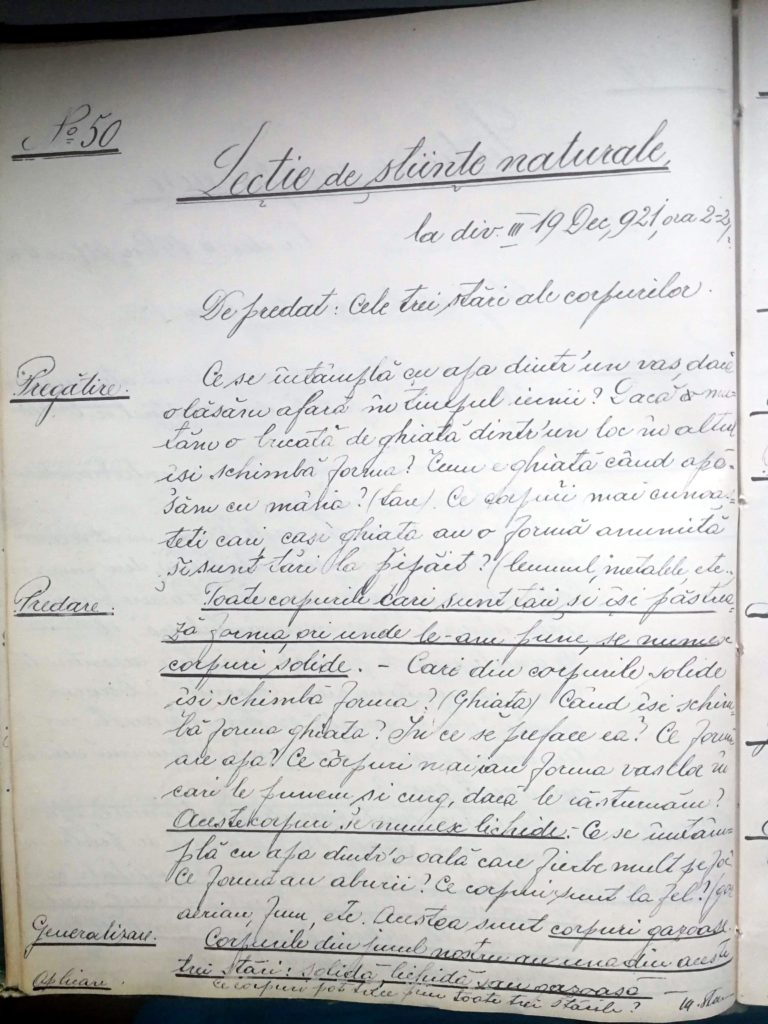 No 50
Lecție de științe naturale,
la div. III 19 Dec, 921, ora 2-3,
De predat: Cele trei stări ale corpurilor.
Pregătire. Ce se întâmplă cu apa dintr'un vas dacă
o lăsăm afară în timpul iernii? Dacă mu-
tăm o bucată de ghiată dintr'un loc în altul
își schimbă forma? Cum e ghiata când apă-
săm cu mâna? (tare). Ce corpuri mai cunoa-
șteti cari ca și ghiata au o formă anumită
și sunt tări la pipăit? (lemnul, metalele, etc.,
Predare. Toate corpurile cari sunt tări, și își păstrea-
ză forma, ori unde le-am pune, se numesc
corpuri solide. - Cari din corpurile solide
își schimbă forma? (Ghiata) Când își schim-
bă forma ghiata? In ce se preface ea? Ce formă
are apa? Ce corpuri mai iau forma vaselor în
cari le punem și curg, dacă le răsturnăm?
Aceste corpuri se numesc lichide. - Ce se întâm-
plă cu apa dintr'o oală care fierbe mult pe foc
Ce formă au aburii? Ce corpuri sunt la fel? (gaz
aerian, fum, etc. Acestea sunt corpuri gazoase.
Generalizare. Corpurile din jurul nostru au una din aceste
trei stări: solidă, lichidă sau gazoasă
Aplicare. Ce corpuri pot trece prin toate trei stările?